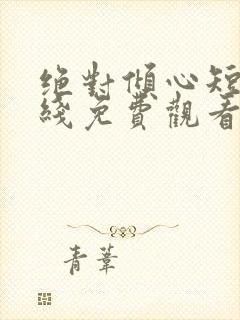 绝對傾心短
綫免費觀看
青葦